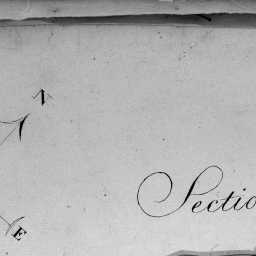 E
Sectio